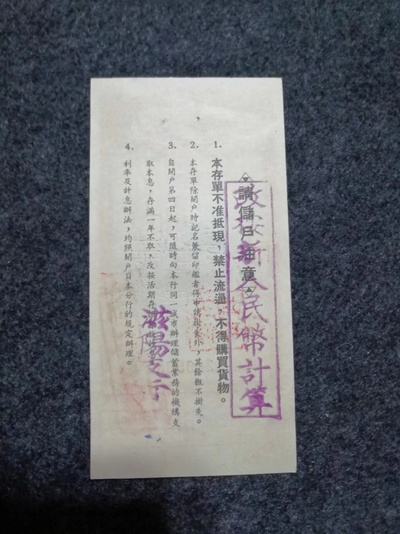 請儲戶注意
改按新人民幣計算
1. 本存單不准抵現，禁止流通，不得購買貨物。
2. 本存單除開戶時記名兼留印鑑者得申請掛失外，其餘概不掛失。
3. 自開戶第四日起，可隨時向本行同一城市辦理儲蓄業務的機構支
取本息，存滿一年不取，改按活期存
4. 利率及計息辦法，均照開戶日本分行的規定辦理。
滋陽支